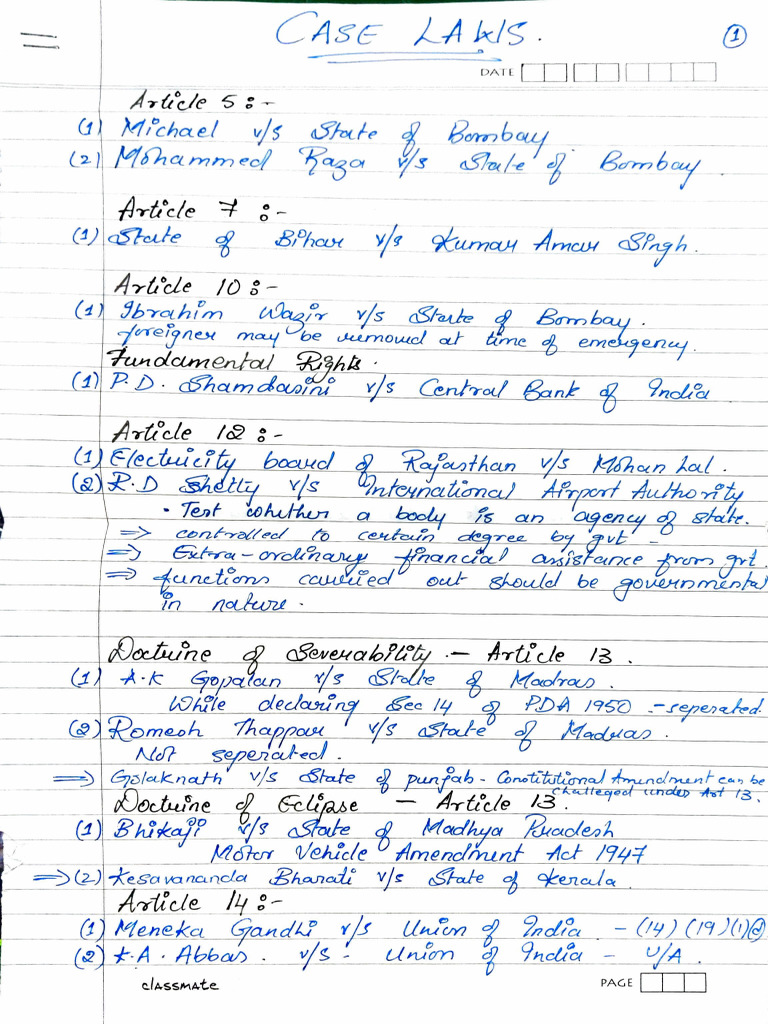 CASE LAWS.
1
DATE
Article 5 :-
(1) Michael v/s State of Bombay
(2) Mohammed Raza v/s State of Bombay
Article 7 :-
(1) State of Bihar v/s Kumar Amar Singh.
Article 10 :-
(1) Ibrahim Wazir v/s State of Bombay.
foreigner may be removed at time of emergency.
Fundamental Rights.
(1) P.D. Shamdasini v/s Central Bank of India
Article 12 :-
(1) Electricity board of Rajasthan v/s Mohan Lal.
(2) R.D Shetty v/s International Airport Authority
• Test whether a body is an agency of state.
⇒ controlled to certain degree by gvt -
⇒ Extra-ordinary financial assistance from gvt.
⇒ functions carried out should be governmental
in nature.
Doctrine of Severability - Article 13.
(1) A.K Gopalan v/s State of Madras.
While declaring Sec 14 of PDA 1950 :- seperated.
(2) Romesh Thappar v/s State of Madras.
Not seperated.
⇒ Golaknath v/s State of punjab - Constititional Amendment can be
challeged under Art 13.
Doctrine of Eclipse - Article 13.
(1) Bhikaji v/s State of Madhya Pradesh
Motor Vehicle Amendment Act 1947
⇒ (2) Kesavananda Bharati v/s State of Kerala.
Article 14 :-
(1) Meneka Gandhi v/s Union of India - (14) (19)(1)(d)
(2) K.A. Abbas. v/s - Union of India - U/A
classmate
PAGE